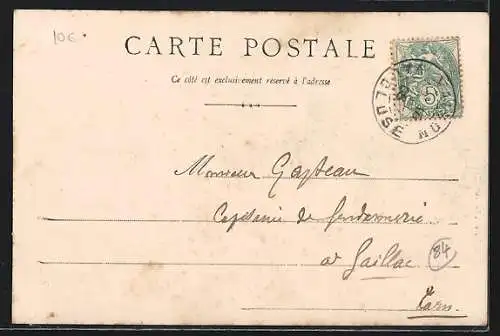 10€
CARTE POSTALE
Ce côté est exclusivement réservé à l'adresse
5
Monsieur Gasteau
Capitaine de Gendarmerie
à Gaillac
84
Tarn